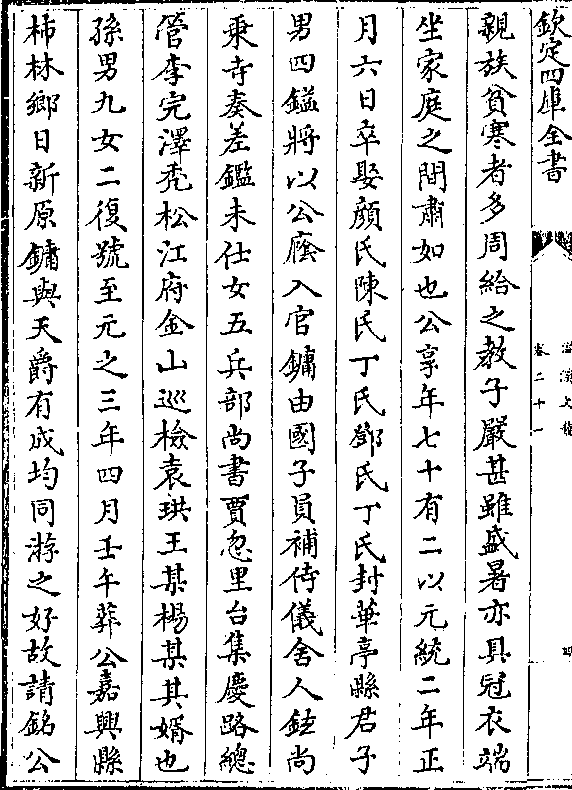 欽定四庫全書
卷二十一
親族貧寒者多周給之教子嚴甚雖盛暑亦具冠衣端
坐家庭之間肅如也公享年七十有二以元統二年正
月六日卒娶顔氏陳氏丁氏鄧氏丁氏封華亭縣君子
男四鎰將以公廕入官鏞由國子員補侍儀舍人鉉尚
乗寺奏差鑑未仕女五兵部尚書賈忽里台集慶路總
管李完澤禿松江府金山巡檢袁珙王某楊某其婿也
孫男九女二復號至元之三年四月壬午葬公嘉興縣
柿林鄉日新原鏞與天爵有成均同游之好故請銘公